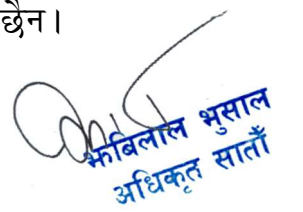 छैन।
झबिलाल भुसाल
अधिकृत सातौँ